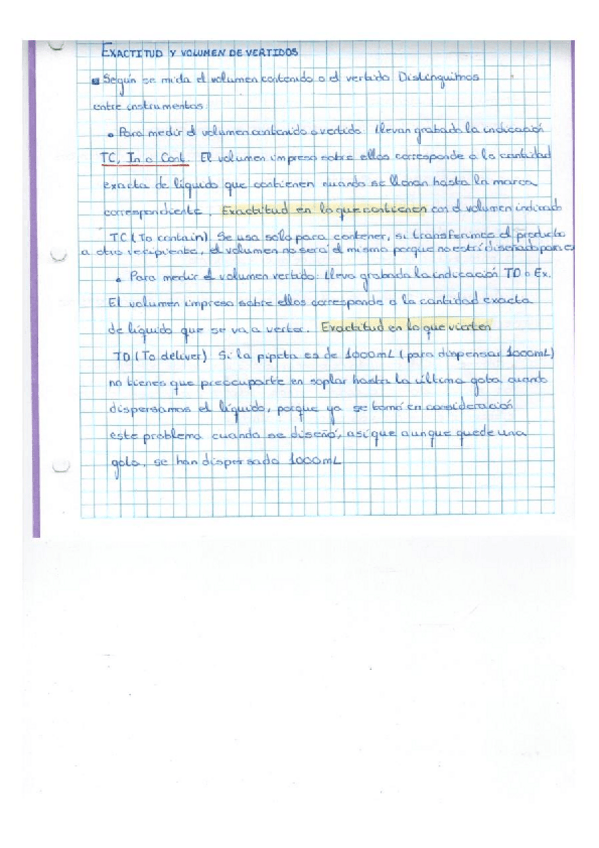 EXACTITUD Y VOLUMEN DE VERTIDOS
Según se mida el volumen contenido o el vertido Distinguimos
entre instrumentos
• Para medir el volumen contenido o vertido: llevan grabada la indicación
TC, In o Cont. El volumen impreso sobre ellos corresponde a la cantidad
exacta de líquido que contienen cuando se llenan hasta la marca
correspondiente. Exactitud en lo que contienen con el volumen indicado
TC (To contain) Se usa solo para contener, si transferimos el producto
a otro recipiente, el volumen no será el mismo porque no está diseñado para
• Para medir el volumen vertido: lleva grabada la indicación TD o Ex.
El volumen impreso sobre ellos corresponde a la cantidad exacta
de líquido que se va a verter. Exactitud en lo que vierten
TD (To deliver) Si la pipeta es de 1000mL (para dispensar 1000mL)
no tienes que preocuparte en soplar hasta la última gota cuando
dispersamos el líquido, porque ya se tomó en consideración
este problema cuando se diseñó, así que aunque quede una
gota, se han dispersado 1000mL